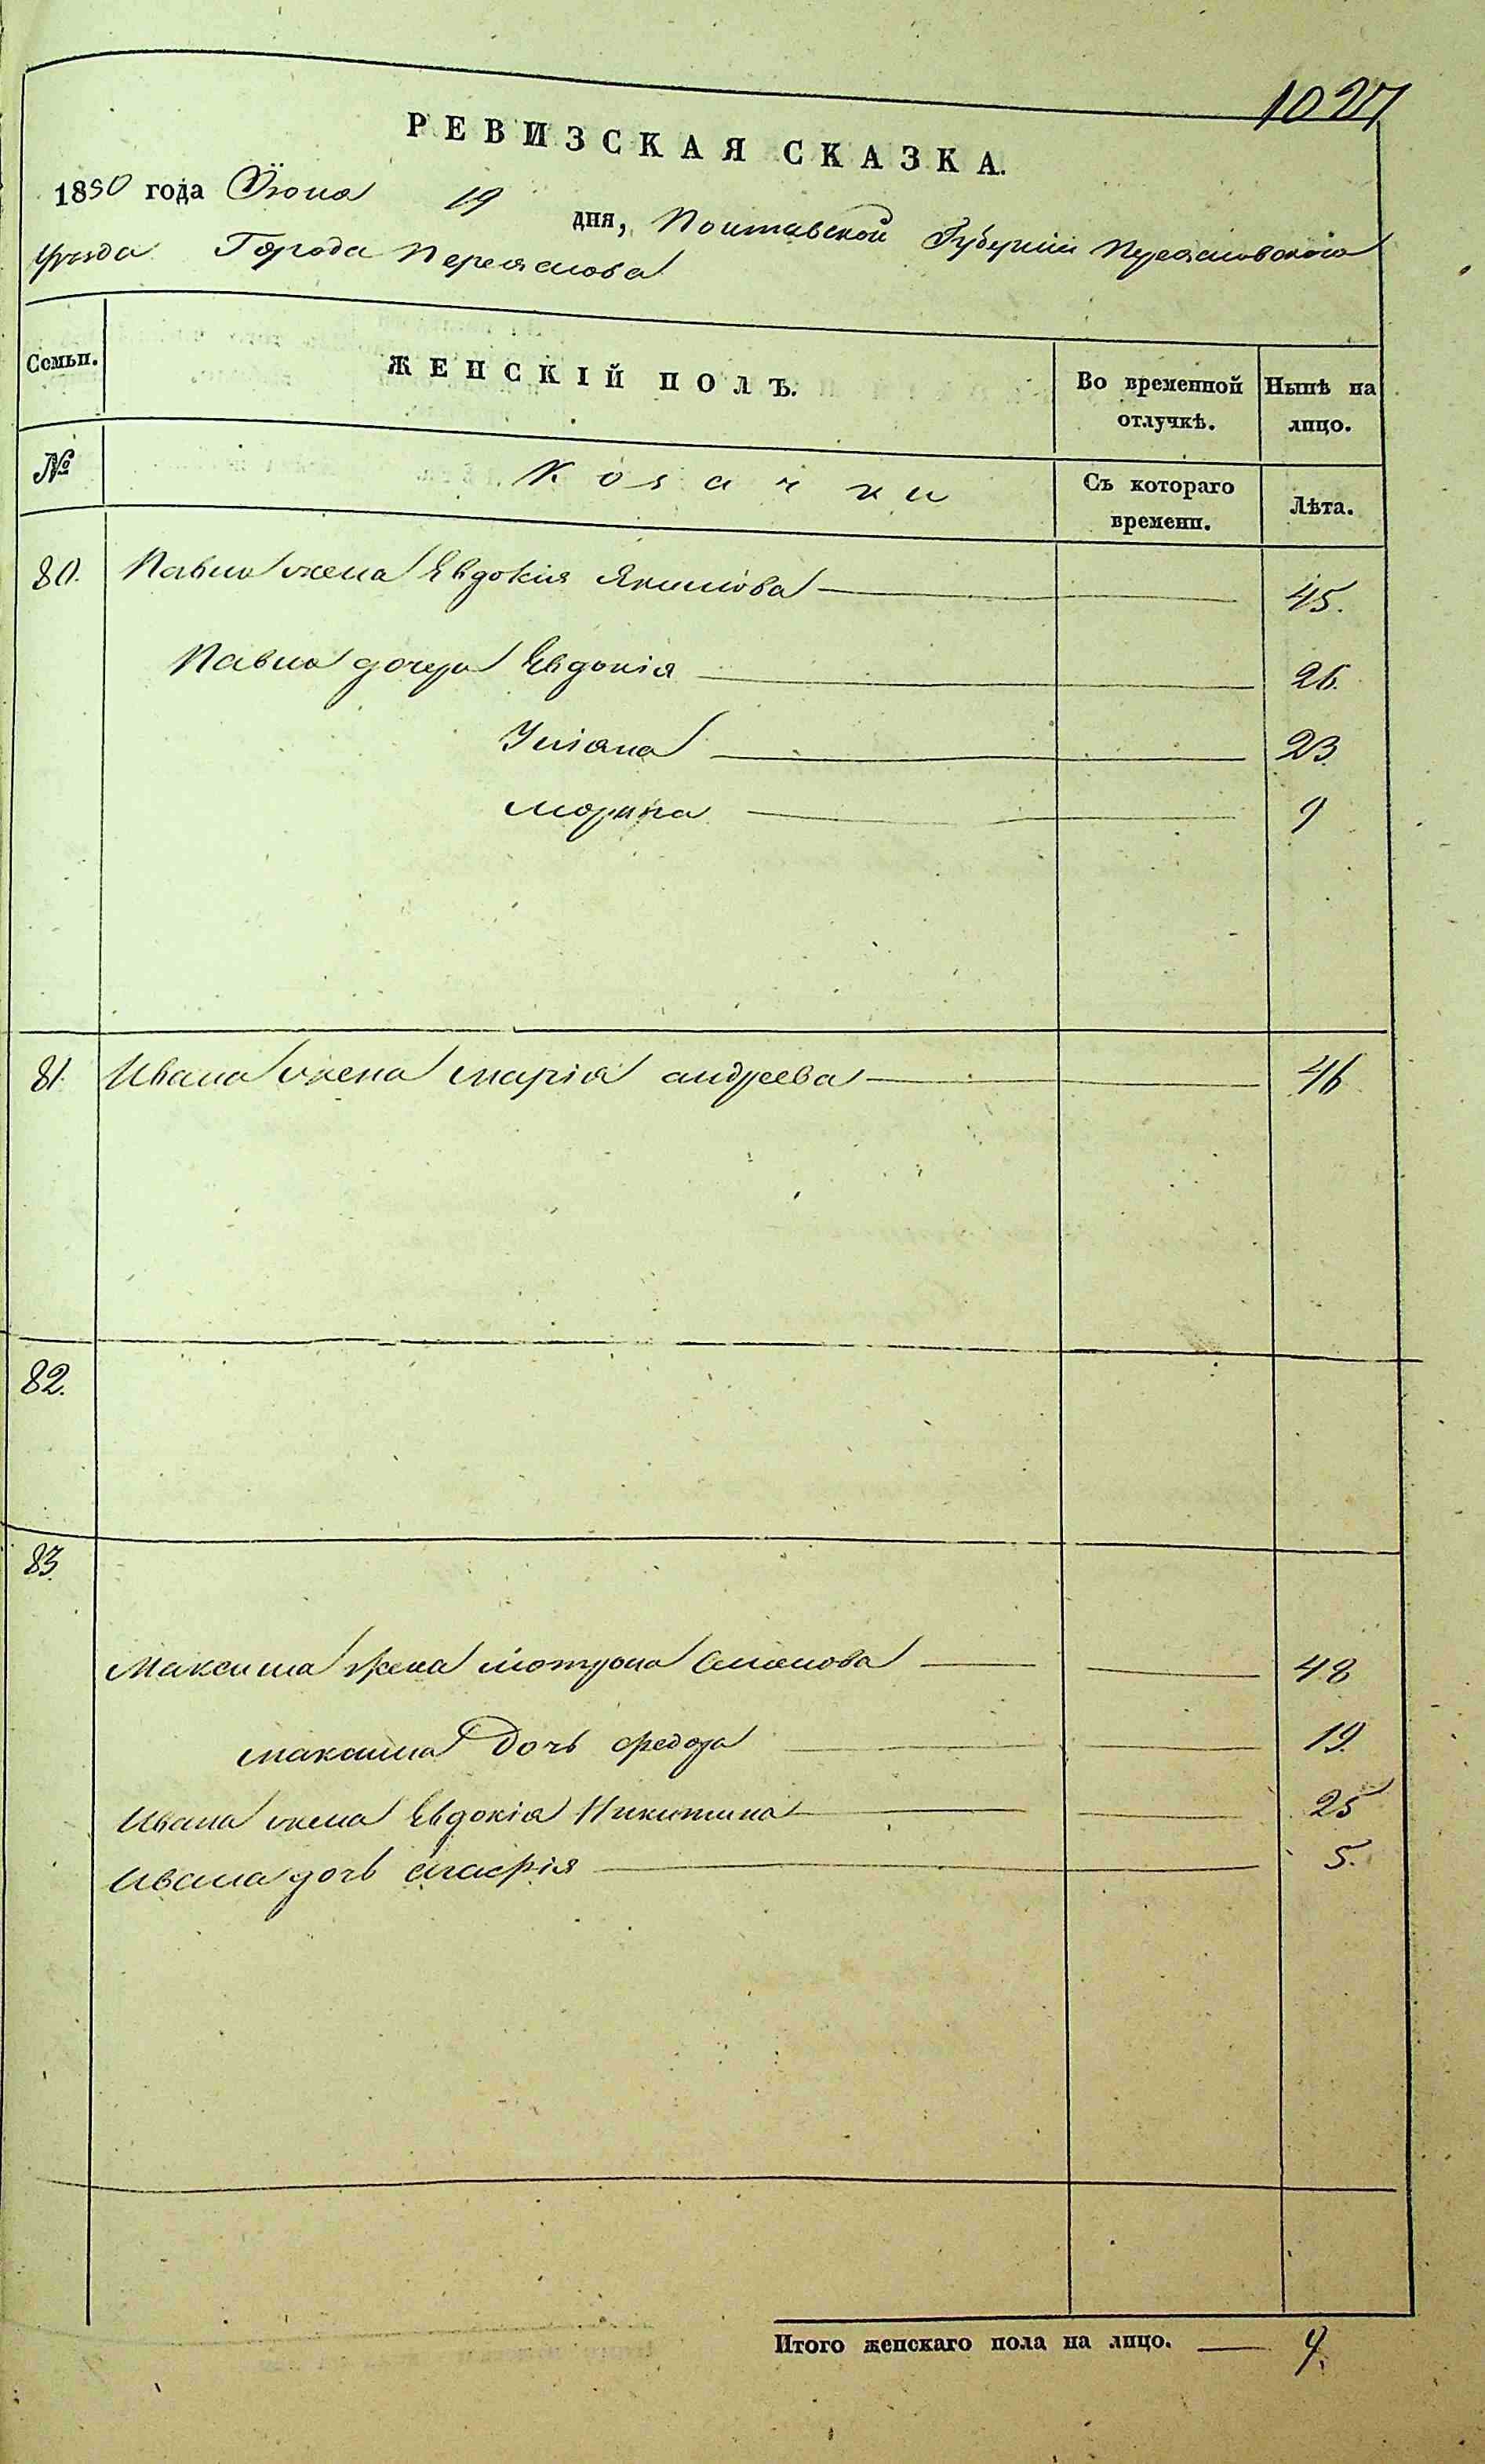 1027
РЕВИЗСКАЯ СКАЗКА.
1850 года Июня 19 дня, Полтавской Губернiи Переяславского
уезда Города Переяслова
Семьи. ЖЕНСКІЙ ПОЛЪ. Во временной отлучкѣ. Нынѣ на лицо.
№ Козачки Съ котораго времени. Лѣта.
80. Павла жена Евдокiя Якимова 45.
Павла дочери Евдокiя 26.
Улiяна 23
Морина 9
81. Ивана жена марiя андреева 46
82.
83
Максима жена мотрона Семенова 48
максима Дочь федора 19.
Ивана жена Евдокiя Никитина 25
Ивана дочь 5.
Итого женскаго пола на лицо. 9.